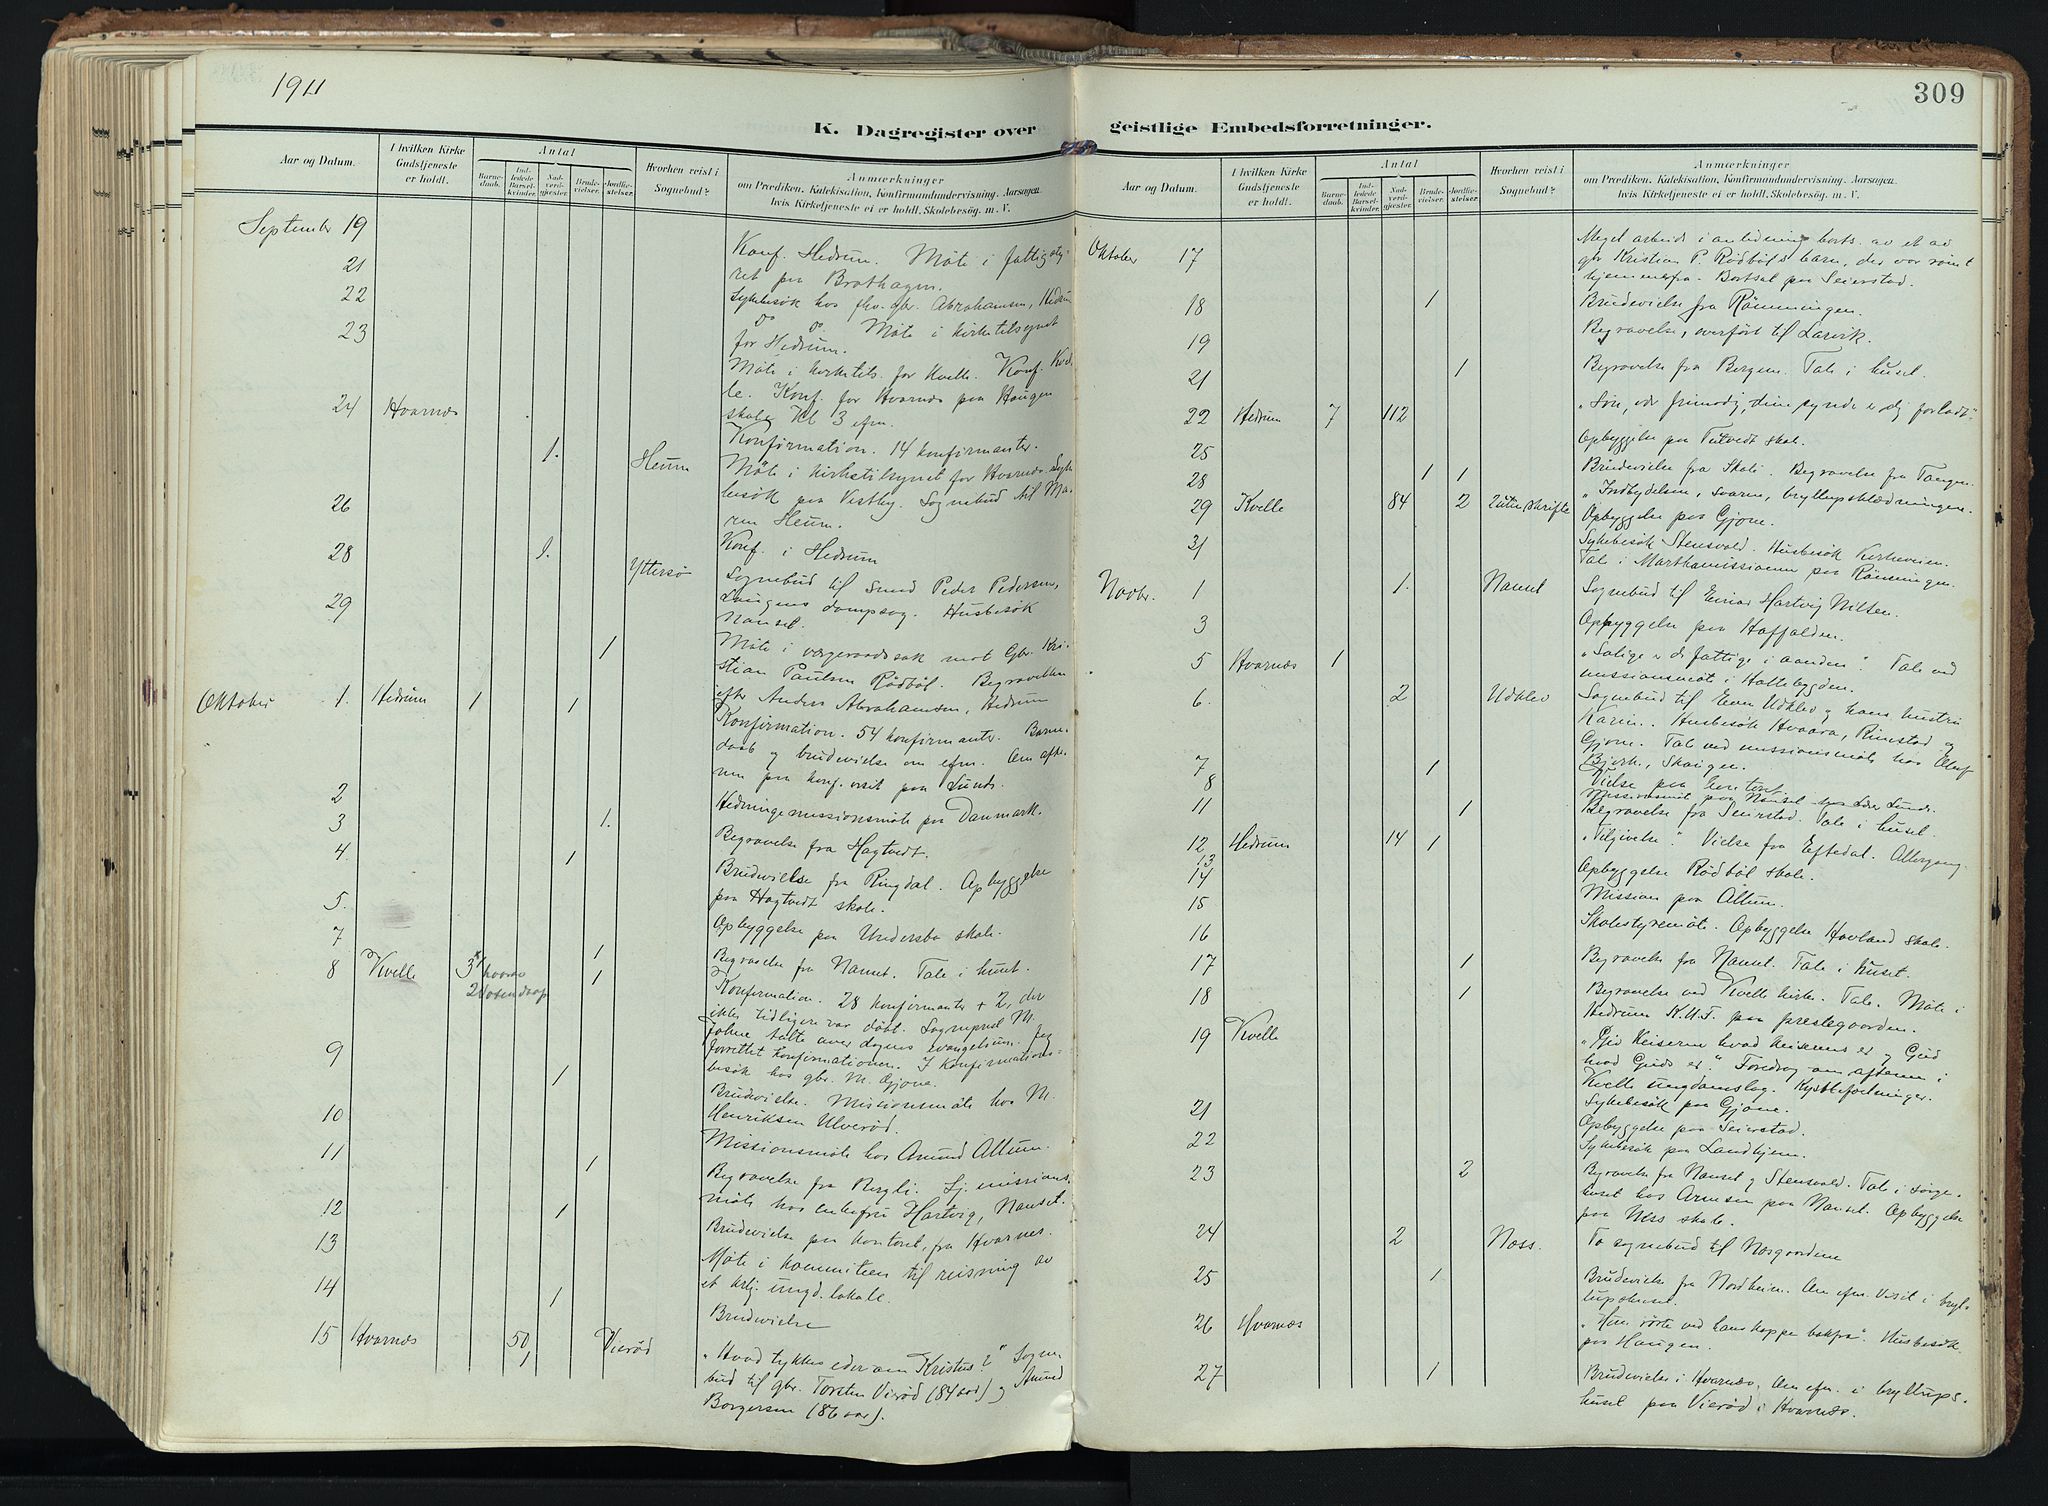 1911
309
K. Dagregister over geistlige Embedsforretninger.
Aar og Datum.
I hvilken Kirke Gudstjeneste er holdt.
Antal
Barnedaab.
Indledede Barselkvinder.
Nadverdgjæster.
Brudevielser.
Jordfæstelser.
Hvorhen reist i Sognebud?
Anmærkninger
om Prædiken, Katekisation, Konfirmandundervisning. Aarsagen.
hvis Kirketjeneste ei er holdt, Skolebesög. m. V.
September 19
Konf. Hedrum. Möte i fattigsty-
21
ret paa Brathagen.
22
Sykebesök hos fhv. gbr. Abrahamsen, Hedrum
23
Möte i kirketilsynet
for Hedrum.
Möte i kirketils. for Kvelle. Konf. Kvel-
le. Konf. for Hvarnes paa Haugen
24 Hvarnæs
skole Kl 3 efm.
Konfirmation. 14 konfirmanter.
1. Heum
Möte i kirketilsynet for Hvarnæs. Syke-
besök paa Vestby. Sognebud til Ma-
26
ren Heum.
28
1.
Konf. i Hedrum
Yttersö
Sognebud til Peder Pedersen,
29
Laugens dampsag. Husbesök
Nanset.
1
Möte i vergeraadssak mot Gbr. Kri-
stian Paulsen Rödböl. Begravelsen
efter Anders Abrahamsen, Hedrum
Oktober 1. Hedrum 1 1
Konfirmation. 54 konfirmanter. Barne-
daab og brudevielse om efm. Om afte-
nen paa paa Lunde.
2
Hedningemissionsmöte paa Danmark.
3 1.
Begravelse fra Hagtvedt.
4. 1
Brudevielse fra Ringdal. Opbyggelse
paa Hagtvedt skole.
5.
Opbyggelse paa Undersbo skole.
7 1
Begravelse fra Nanset. Tale i huset.
8 Kvelle 3 1
Konfirmation. 28 konfirmanter + 2, der
ikke tidligere var döbt. Sogneprest M.
talte over dagens evangelium. Jeg
9
forrettet konfirmationen. Konfirmations-
besök hos gbr. M. Gjone.
1
Brudevielse. Missionsmöte hos M.
10
Henriksen Ulveröd.
11
Missionsmöte hos Amund Allum.
1
Begravelse fra Bergli. Sj. missions-
möte hos enkefru Hartvig, Nanset.
12 1
Brudevielse paa kontoret, fra Hvarnes.
13
Möte i kommiteen til reisning av
et krlj. ungd. lokale.
14 1
Brudevielse
15 Hvarnæs 50 1 Vieröd
"Hvad tykkes eder om Kristus?" Sogne-
bud til gbr. Torsten Vieröd (84 aar) og Amund
Borgersen (86 aar).
Meget arbeide i anledning borts. av et av
Oktober 17
gbr Kristian P. Rödböls barn, der var römt
hjemmefra. Bortsat paa Seierstad.
18 1
Brudevielse fra Römmingen.
Begravelse, overfört til Larvik.
19
21 1
Begravelse fra Bergene. Tale i huset.
22 Hedrum 7 112
"Sön, vær frimodig, dine synder er dig forladt".
Opbyggelse paa Tutvedt skole.
25
28 1 1
Brudevielse fra Skoli. Begravelse fra Tangen.
29 Kvelle 84 2
"Indbydelsen, svarene, bryllupsklædningen.
Opbyggelse paa Gjone.
31
Sykebesök Stensvold. Husbesök Kirkeveien.
Tale i Marthamissionen paa Römmingen.
Novbr. 1 1. Nanset
Sognebud til Einar Hartvig Nilsen.
3
Opbyggelse paa Haffalden.
5 Hvarnæs 1
"Salige er de fattige i aanden". Tale ved
missionsmöte i Hattebygden.
6. 2 Udklev
Sognebud til Even Udklev og hans hustru
Karen. Husbesök Hvaara, Rimstad og
Gjone. Tale ved missionsmöte hos Oluf
7 1
Bjerk, Skaugen.
8
Vielse paa kontoret.
Missionsmöte paa Nanset hos
11 1
Begravelse fra Seierstad. Tale i huset.
12 Hedrum 14 1
"Tilgivelse". Vielse fra Eftedal. Altergang.
13
14
Opbyggelse Rödböl skole.
15
Mission paa Allum.
16
Skolestyremöte. Opbyggelse Hovland skole.
17 1
Begravelse fra Nanset. Tale i huset.
18 1
Begravelse ved Kvelle kirke. Tale. Möte i
Hedrum K.U.F. paa prestegaarden.
19 Kvelle
"Giv Keiseren hvad keiserens er og Gud
hvad Guds er". Foredrag om aftenen i
Kvelle ungdomslag.
Sykebesök paa Gjone.
21
Opbyggelse paa Seierstad.
22
Sykebesök paa Landhjem.
23 2
Begravelse fra Nanset og Stensvold. Tale i sörge-
huset hos Arnesen paa Nanset. Opbyggelse
paa Næss skole.
24 2 Næss.
To sognebud til Næsgaardene
25 1
Brudevielse fra Nordheim. Om efm. visit i bryl-
lupshuset.
26 Hvarnæs
"Hun rörte ved hans kappe bakfra". Husbesök
paa Haugen.
27 1
Brudevielse i Hvarnæs. Om efm. i bryllups-
huset paa Vieröd i Hvarnæs.